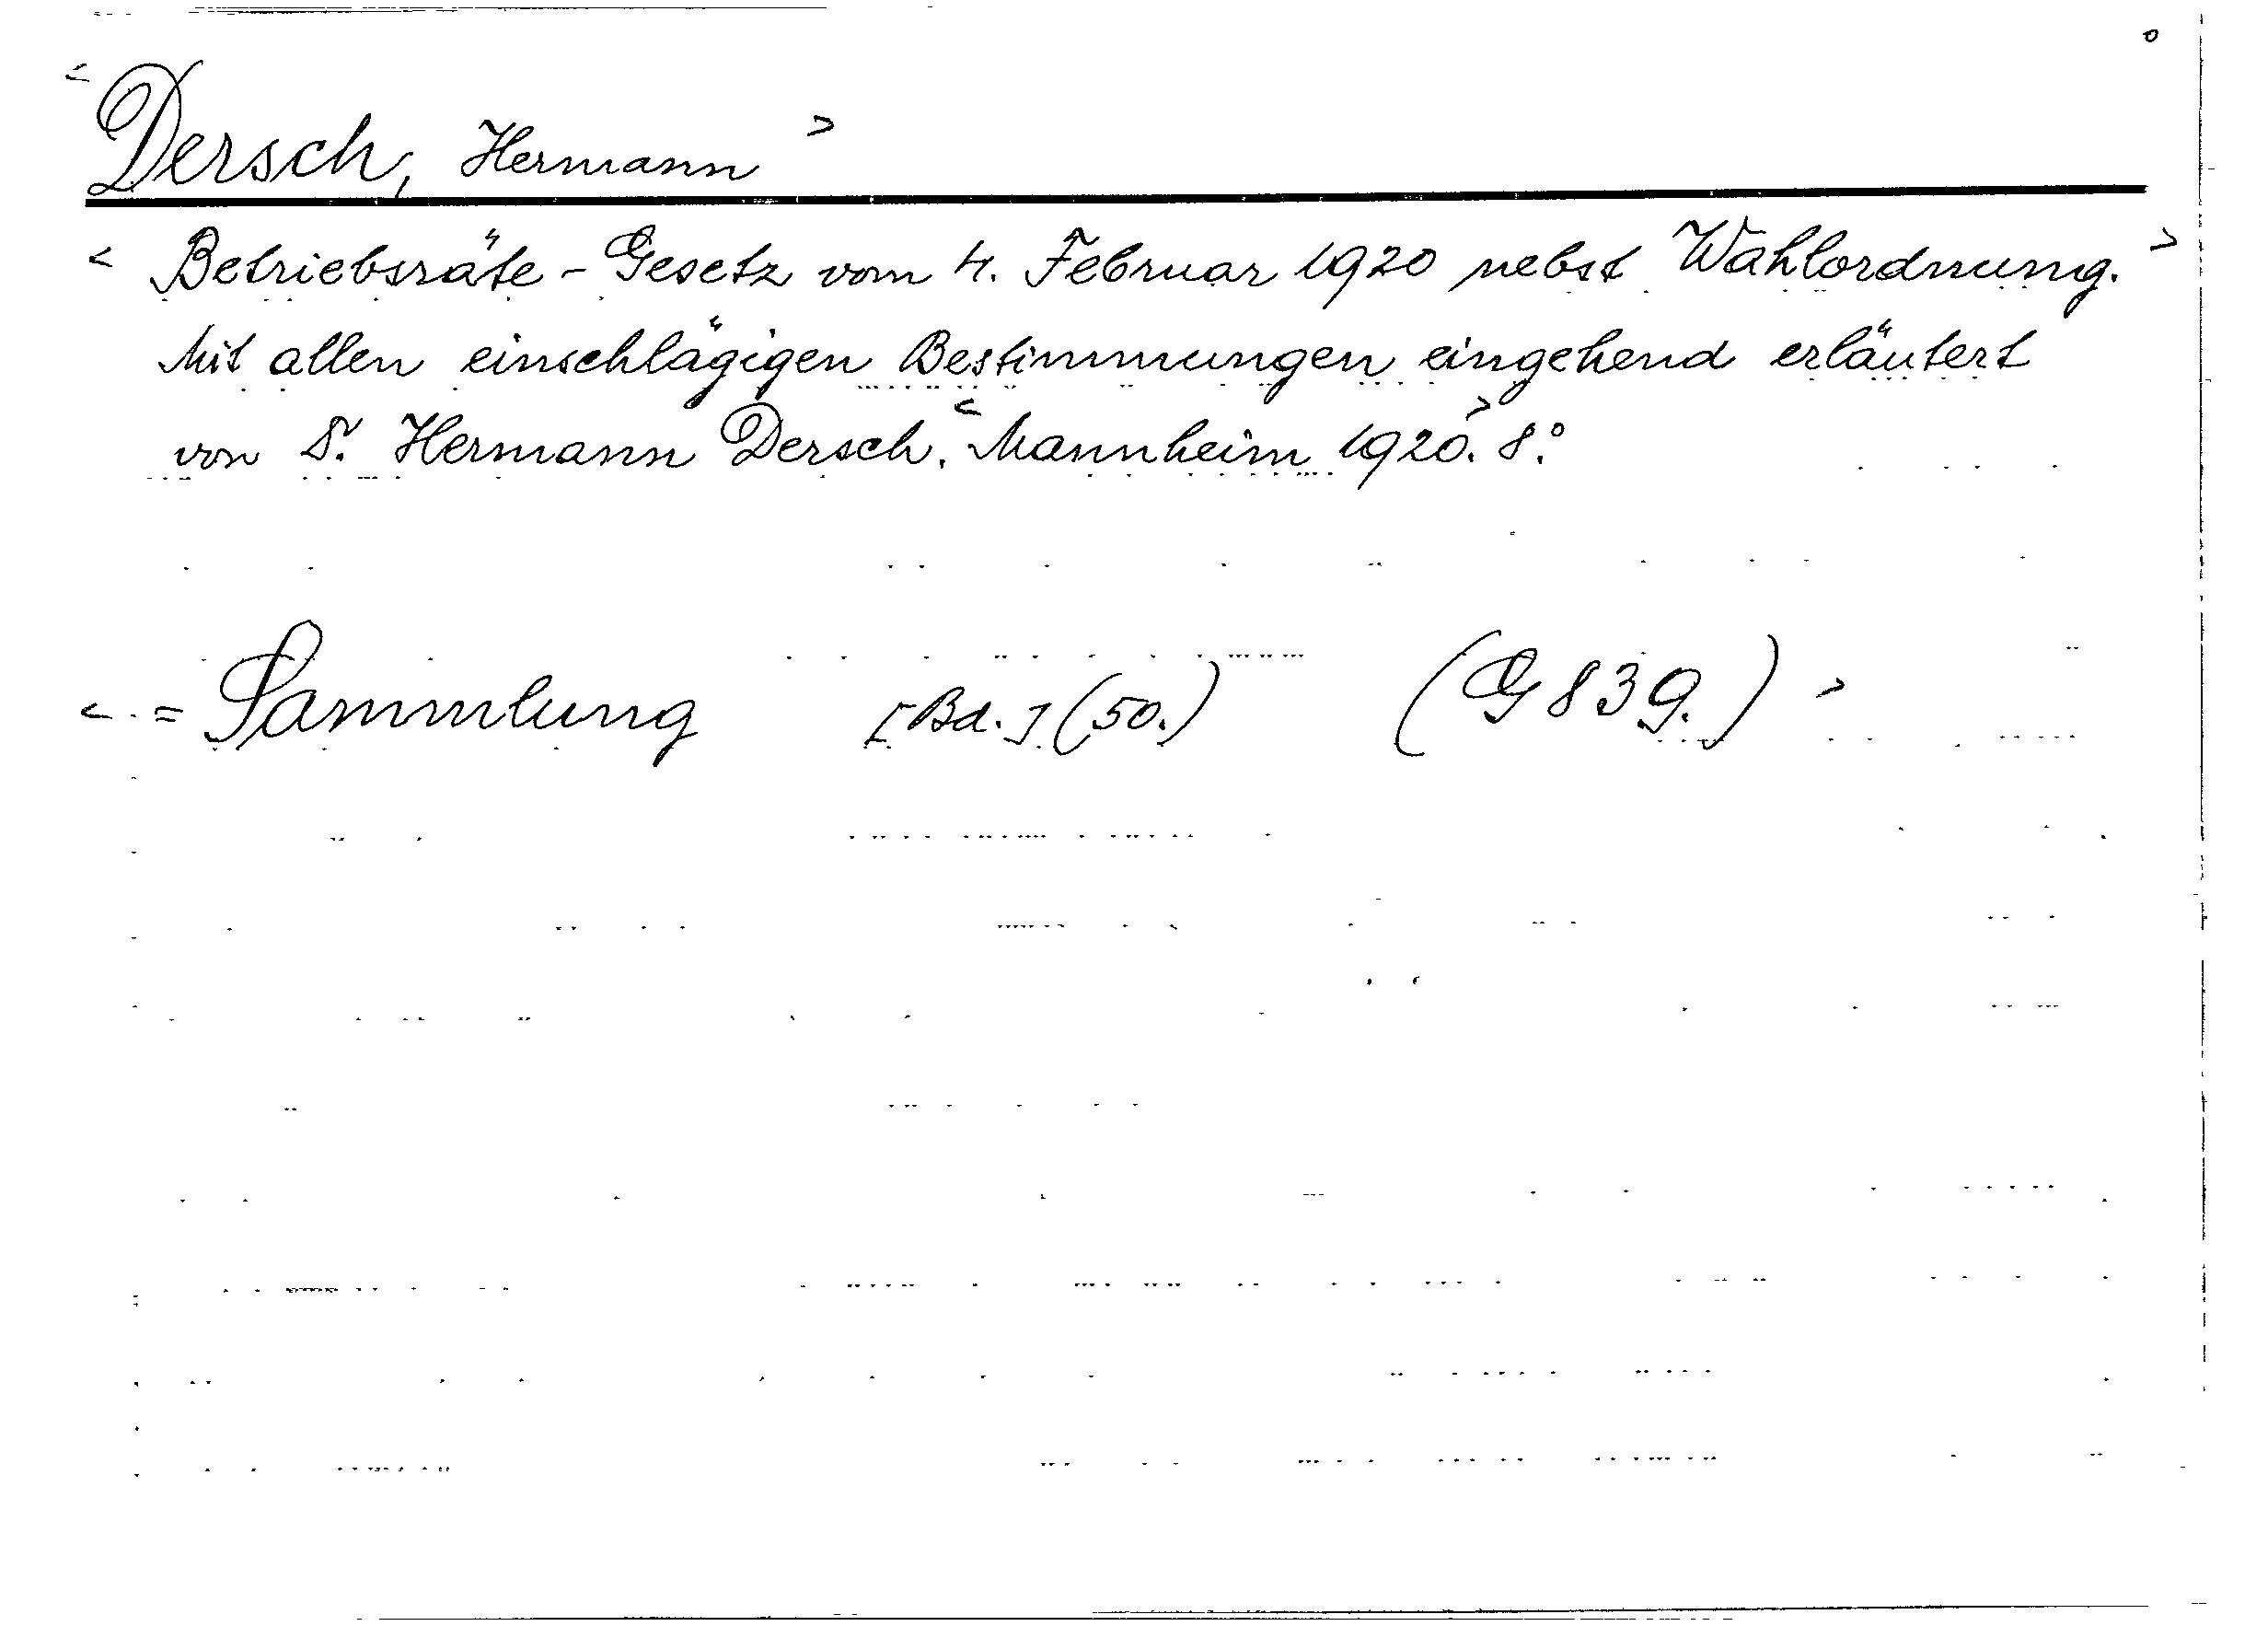 < Dersch, Hermann >
< Betriebsräte - Gesetz vom 4. Februar 1920 nebst Wahlordnung. >
Mit allen einschlägigen Bestimmungen eingehend erläutert
von Dr. Hermann Dersch. < Mannheim 1920. > 8.°
< = Sammlung [Bd.] (50.) (G 839.) >